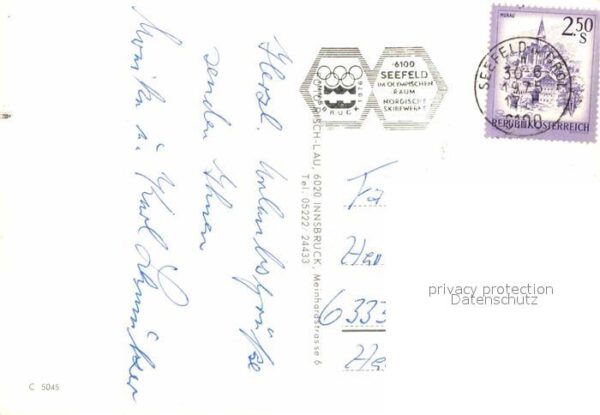 Herzl. Urlaubsgrüße
senden Ihnen
Monika u. Karl
MURAU
2.50
S
REPUBLIK ÖSTERREICH
SEEFELD TIROL
30-6
1975
17
6100
INNSBRUCK 1976
6100
SEEFELD
IM OLYMPISCHEN
RAUM
NORDISCHE
SKIBEWERBE
RISCH-LAU, 6020 INNSBRUCK, Meinhardstrasse 6
Tel. 05222 24433
Fa
6333
privacy protection
Datenschutz
C 5045